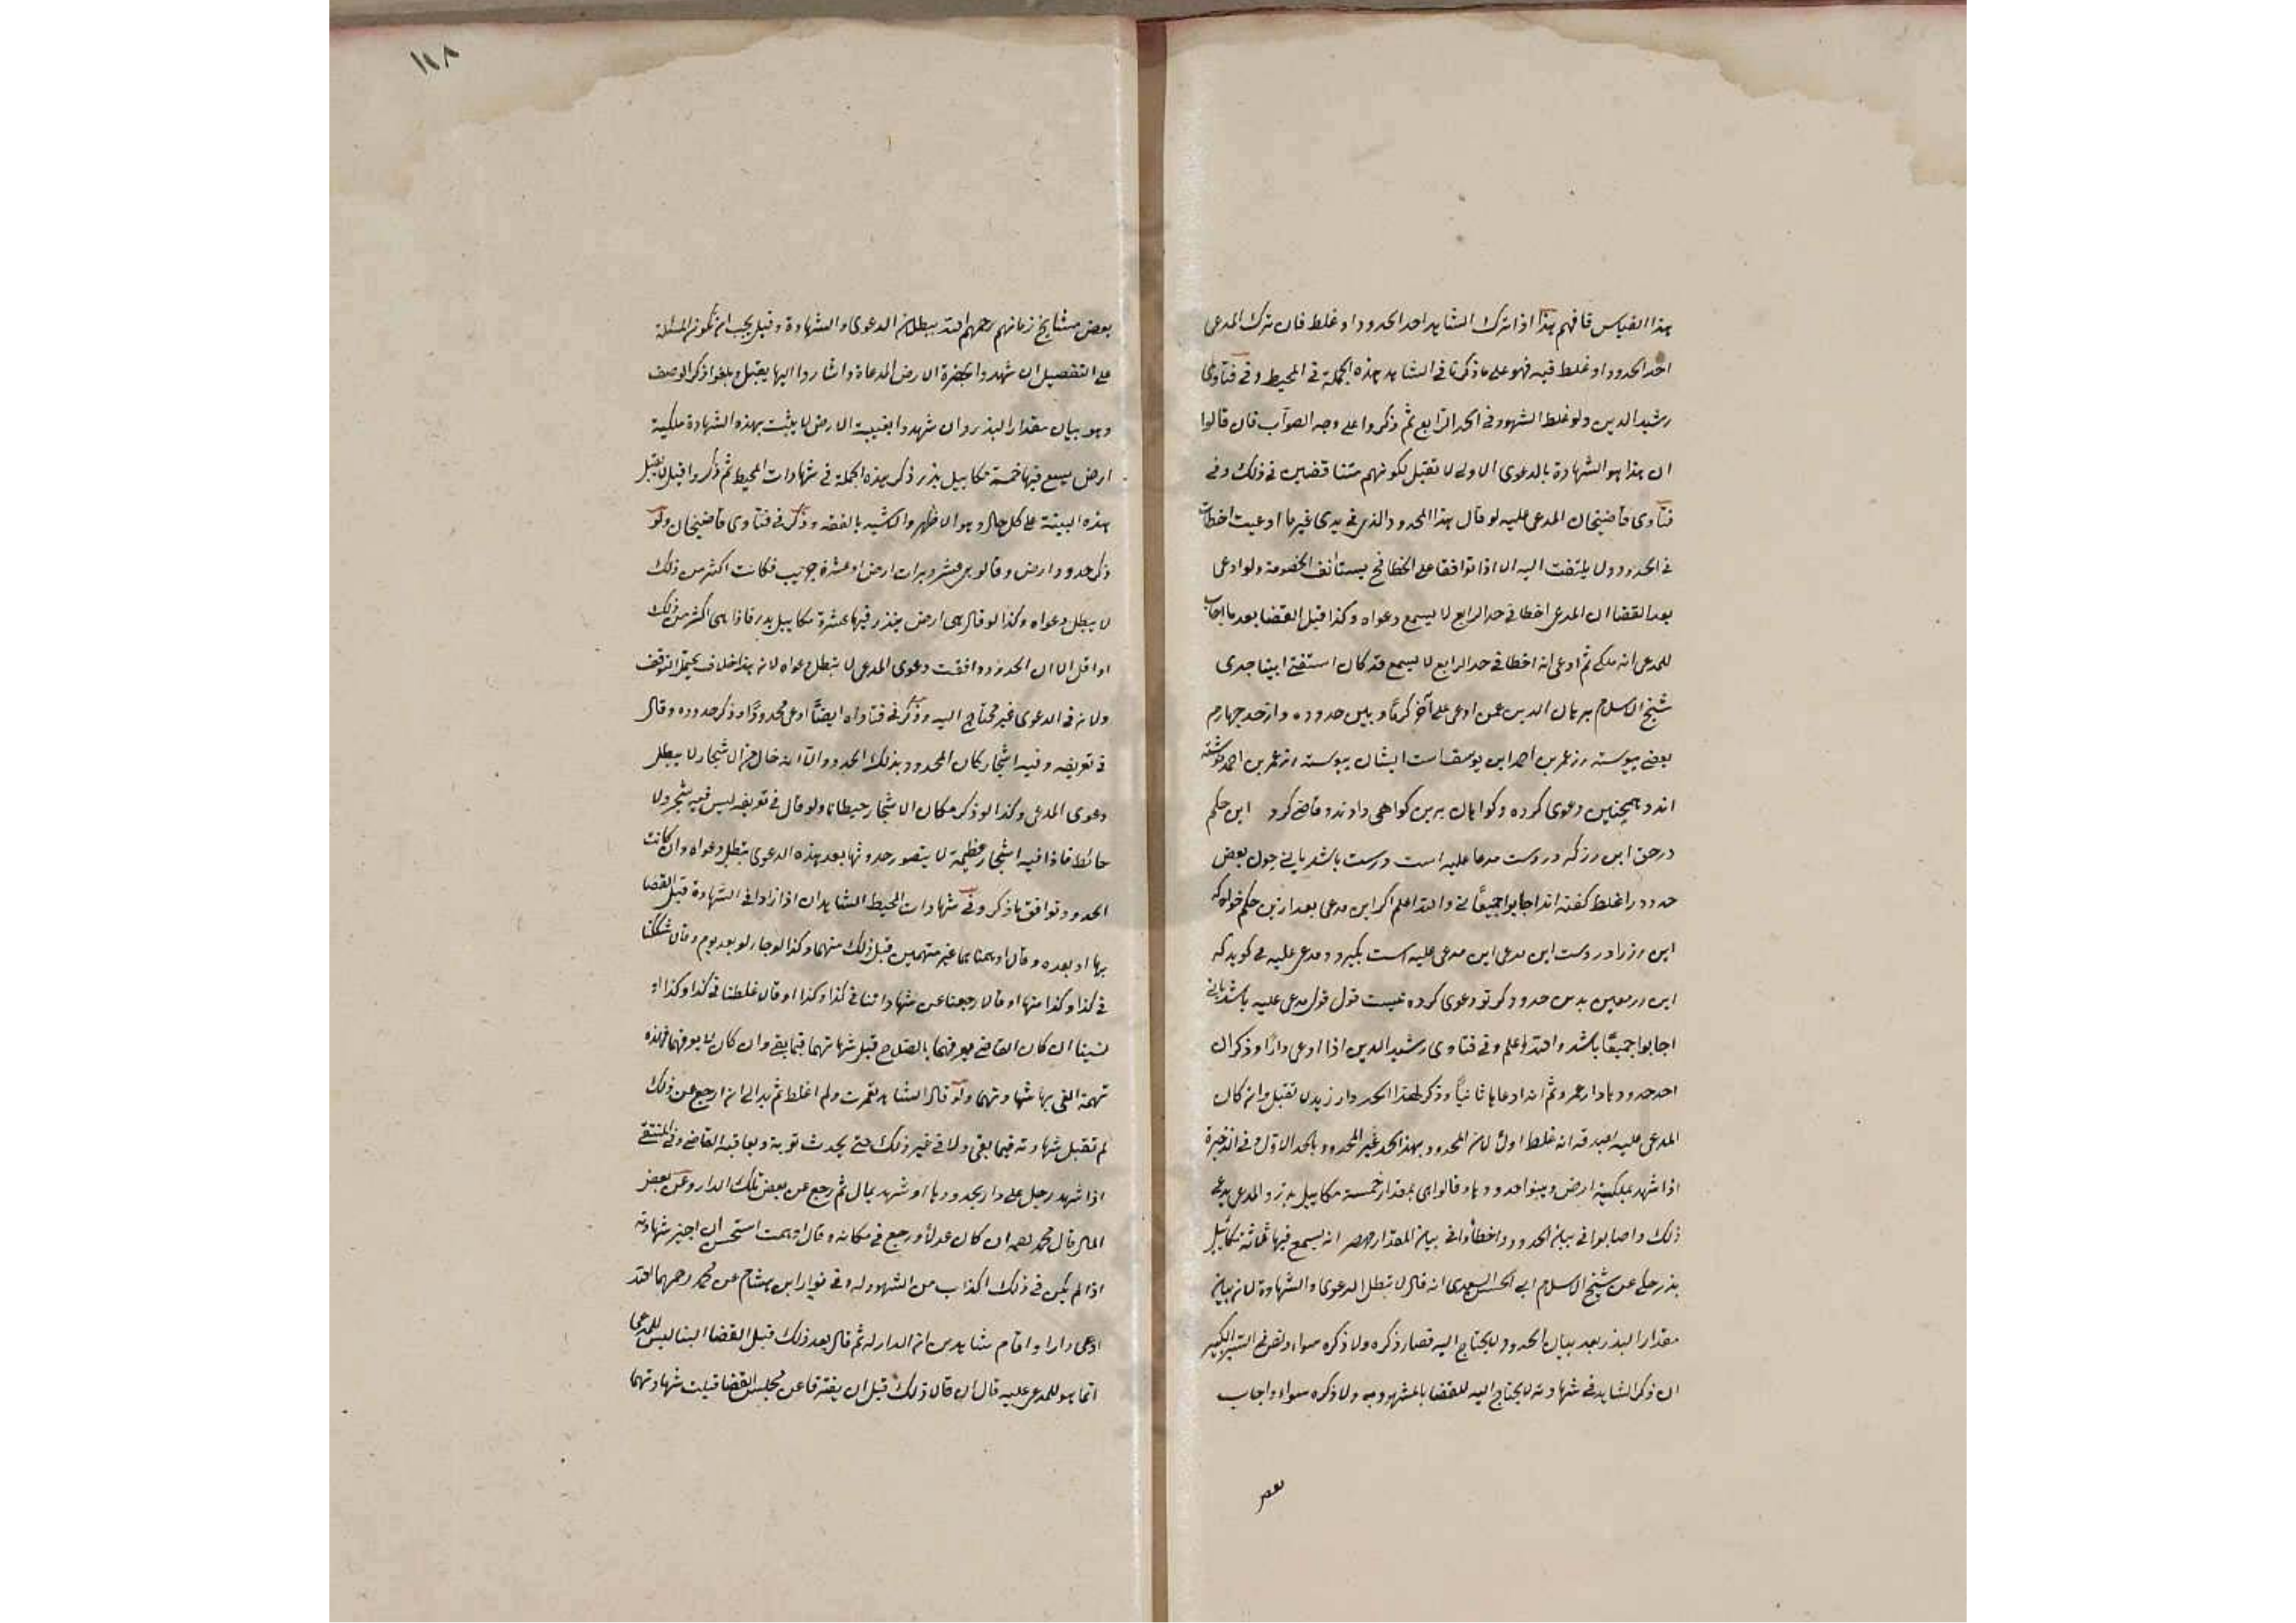 هذا القياس فافهم هذا اذا ترك الشاهد احد الحدود او غلط فان ترك المدعى
احد الحدود او غلط فيه فهو على ما ذكرنا فى الشاهد هذه الجملة فى المحيط وفى فتاوى
رشيد الدين ولو غلط الشهود فى الحد الرابع ثم ذكروا على وجه الصواب فان قالوا
ان هذا هو الشهادة بالدعوى الاولى لا تقبل لكونهم متناقضين فى ذلك وفى
فتاوى قاضيخان المدعى عليه لو قال هذا المحدود الذى فى يدى غير ما ادعيت اخطات
فى الحدود ولا يلتفت اليه الا اذا توافقا على الخطا فح يستانف الخصومة ولو ادعى
بعد القضا ان المدعى اخطا فى حد الرابع لا يسمع دعواه وكذا قبل القضا بعد ما اجاب
للمدعى انه ملكى ثم ادعى انه اخطا فى حد الرابع لا يسمع قد كان استفتى ابينا جدى
شيخ الاسلام برهان الدين عمن ادعى على آخر كرمًا وبين حدوده واز حد چهارم
بعضى پيوسته رز عمر بن احمد ابن يوسف است ايشان پيوسته رز عمر بن احمد نوشته
اند وهمچنين دعوى كرده وگواهان برين گواهى دادند وقاضى كرد اين حكم
در حق اين رز كه در دست مدعا عليه است درست باشد يا نى چون بعض
حدود را غلط گفته اند اجابوا جميعًا نى والله اعلم اگر اين مدعى بعد ازين حكم خواهد كه
اين رز را در دست اين مدعى عليه است بگيرد ومدعى عليه مى گويد كه
اين رز معين بدين حدود كه تو دعوى كرده نيست قول قول مدعى عليه باشد يا نى
اجابوا جميعًا باشد والله اعلم وفى فتاوى رشيد الدين اذا ادعى دارًا وذكر ان
احد حدودها دار عمرو ثم انه ادعاها ثانيًا وذكر لهذا الحد دار زيد لا تقبل وان كان
المدعى عليه يصدقه انه غلط اولا لان المحدود بهذا الحد غير المحدود بالحد الاول فى الذخيرة
اذا شهد بملكية ارض وبينوا حدودها وقالوا هى بمقدار خمسة مكاييل بذر والمدعى يدعى
ذلك واصابوا فى بيان الحدود واخطأوا فى بيان المقدار انه يسع فيها ثلاثة مكاييل
بذر حكى عن شيخ الاسلام ابى الحسن السعدى انه قال لا تبطل الدعوى والشهادة لان بيان
مقدار البذر بعد بيان الحدود لا يحتاج اليه فصار ذكره ولا ذكره سواء ونص فى السير الكبير
ان ذكر الشاهد فى شهادته لا يحتاج اليه للقضا بالمشهود به ولا ذكره سواء واجاب
بعض
١١٨
بعض مشايخ زمانهم رحمهم الله ببطلان الدعوى والشهادة وقيل يجب ان تكون المسئلة
على التفصيل ان شهدوا بحضرة الارض المدعاة واشاروا اليها يقبل ويلغو ذكر الوصف
وهو بيان مقدار البذر وان شهدوا بغيبة الارض لا يثبت بهذه الشهادة ملكية
ارض يسع فيها خمسة مكاييل بذر ذكر هذه الجملة فى شهادات المحيط ثم ذكر وقيل لا يقبل
هذه البينة على كل حال وهو الاظهر والاشبه بالفقه وذكر فى فتاوى قاضيخان ولو
ذكر حدود ارض وقالوا هى عشر ديرات ارض او عشرة جريب فكانت اكثر من ذلك
لا يبطل دعواه وكذا لو قال هى ارض يبذر فيها عشرة مكاييل بذر فاذا هى اكثر من ذلك
او اقل الا ان الحدود وافقت دعوى المدعى لا تبطل دعواه لان هذا خلاف يحتمل التوقف
ولانه فى الدعوى غير محتاج اليه وذكر فى فتاواه ايضًا ادعى محدودًا وذكر حدوده وقال
فى تعريضه وفيه اشجار كان المحدود بذلك الحدود الا انه خال من الاشجار لا يبطل
دعوى المدعى وكذا لو ذكر مكان الاشجار حيطانا ولو قال فى تعريفه ليس فيه شجر ولا
حائط فاذا فيه اشجار عظيمة لا يتصور حدوثها بعد هذه الدعوى تبطل دعواه وان كانت
الحدود توافق ما ذكر وفى شهادات المحيط الشاهدان اذا زادا فى الشهادة قبل القضا
بها او بعده وقالا اوهمنا وهما غير متهمين قبل ذلك منهما وكذا لو جاء لو بعد يوم وقال شككنا
فى كذا وكذا منها او قالا رجعنا عن شهاداتنا فى كذا وكذا او قالا غلطنا فى كذا وكذا او
نسينا ان كان القاضى يعرفهما بالصلاح قبل شهادتهما فيما بقى وان كان لا يعرفهما فهذه
تهمة القى بها شهادتهما ولو قال الشاهد تعمرت ولم اغلط ثم بدا لى ان ارجع عن ذلك
لم تقبل شهادته فيما بقى ولا فى غير ذلك حتى يحدث توبة ويعاقبه القاضى وفى المنتقى
اذا شهد رجل على دار بحدودها او شهد بمال ثم رجع عن بعض تلك الدار وعن بعض
المال قال محمد رحمه ان كان عدلًا ورجع فى مكانه وقال اوهمت استحسن ان اجيز شهادته
اذا لم يكن فى ذلك اكذاب من الشهود له وفى نوادر ابن هشام عن محمد رحمهما الله
ادعى دارا واقام شاهدين ان الدار له ثم قال بعد ذلك قبل القضا البنا ليس للمدعى
انما هو للمدعى عليه قال ان قال ذلك قبل ان يفترقا عن مجلس القضا قبلت شهادتهما